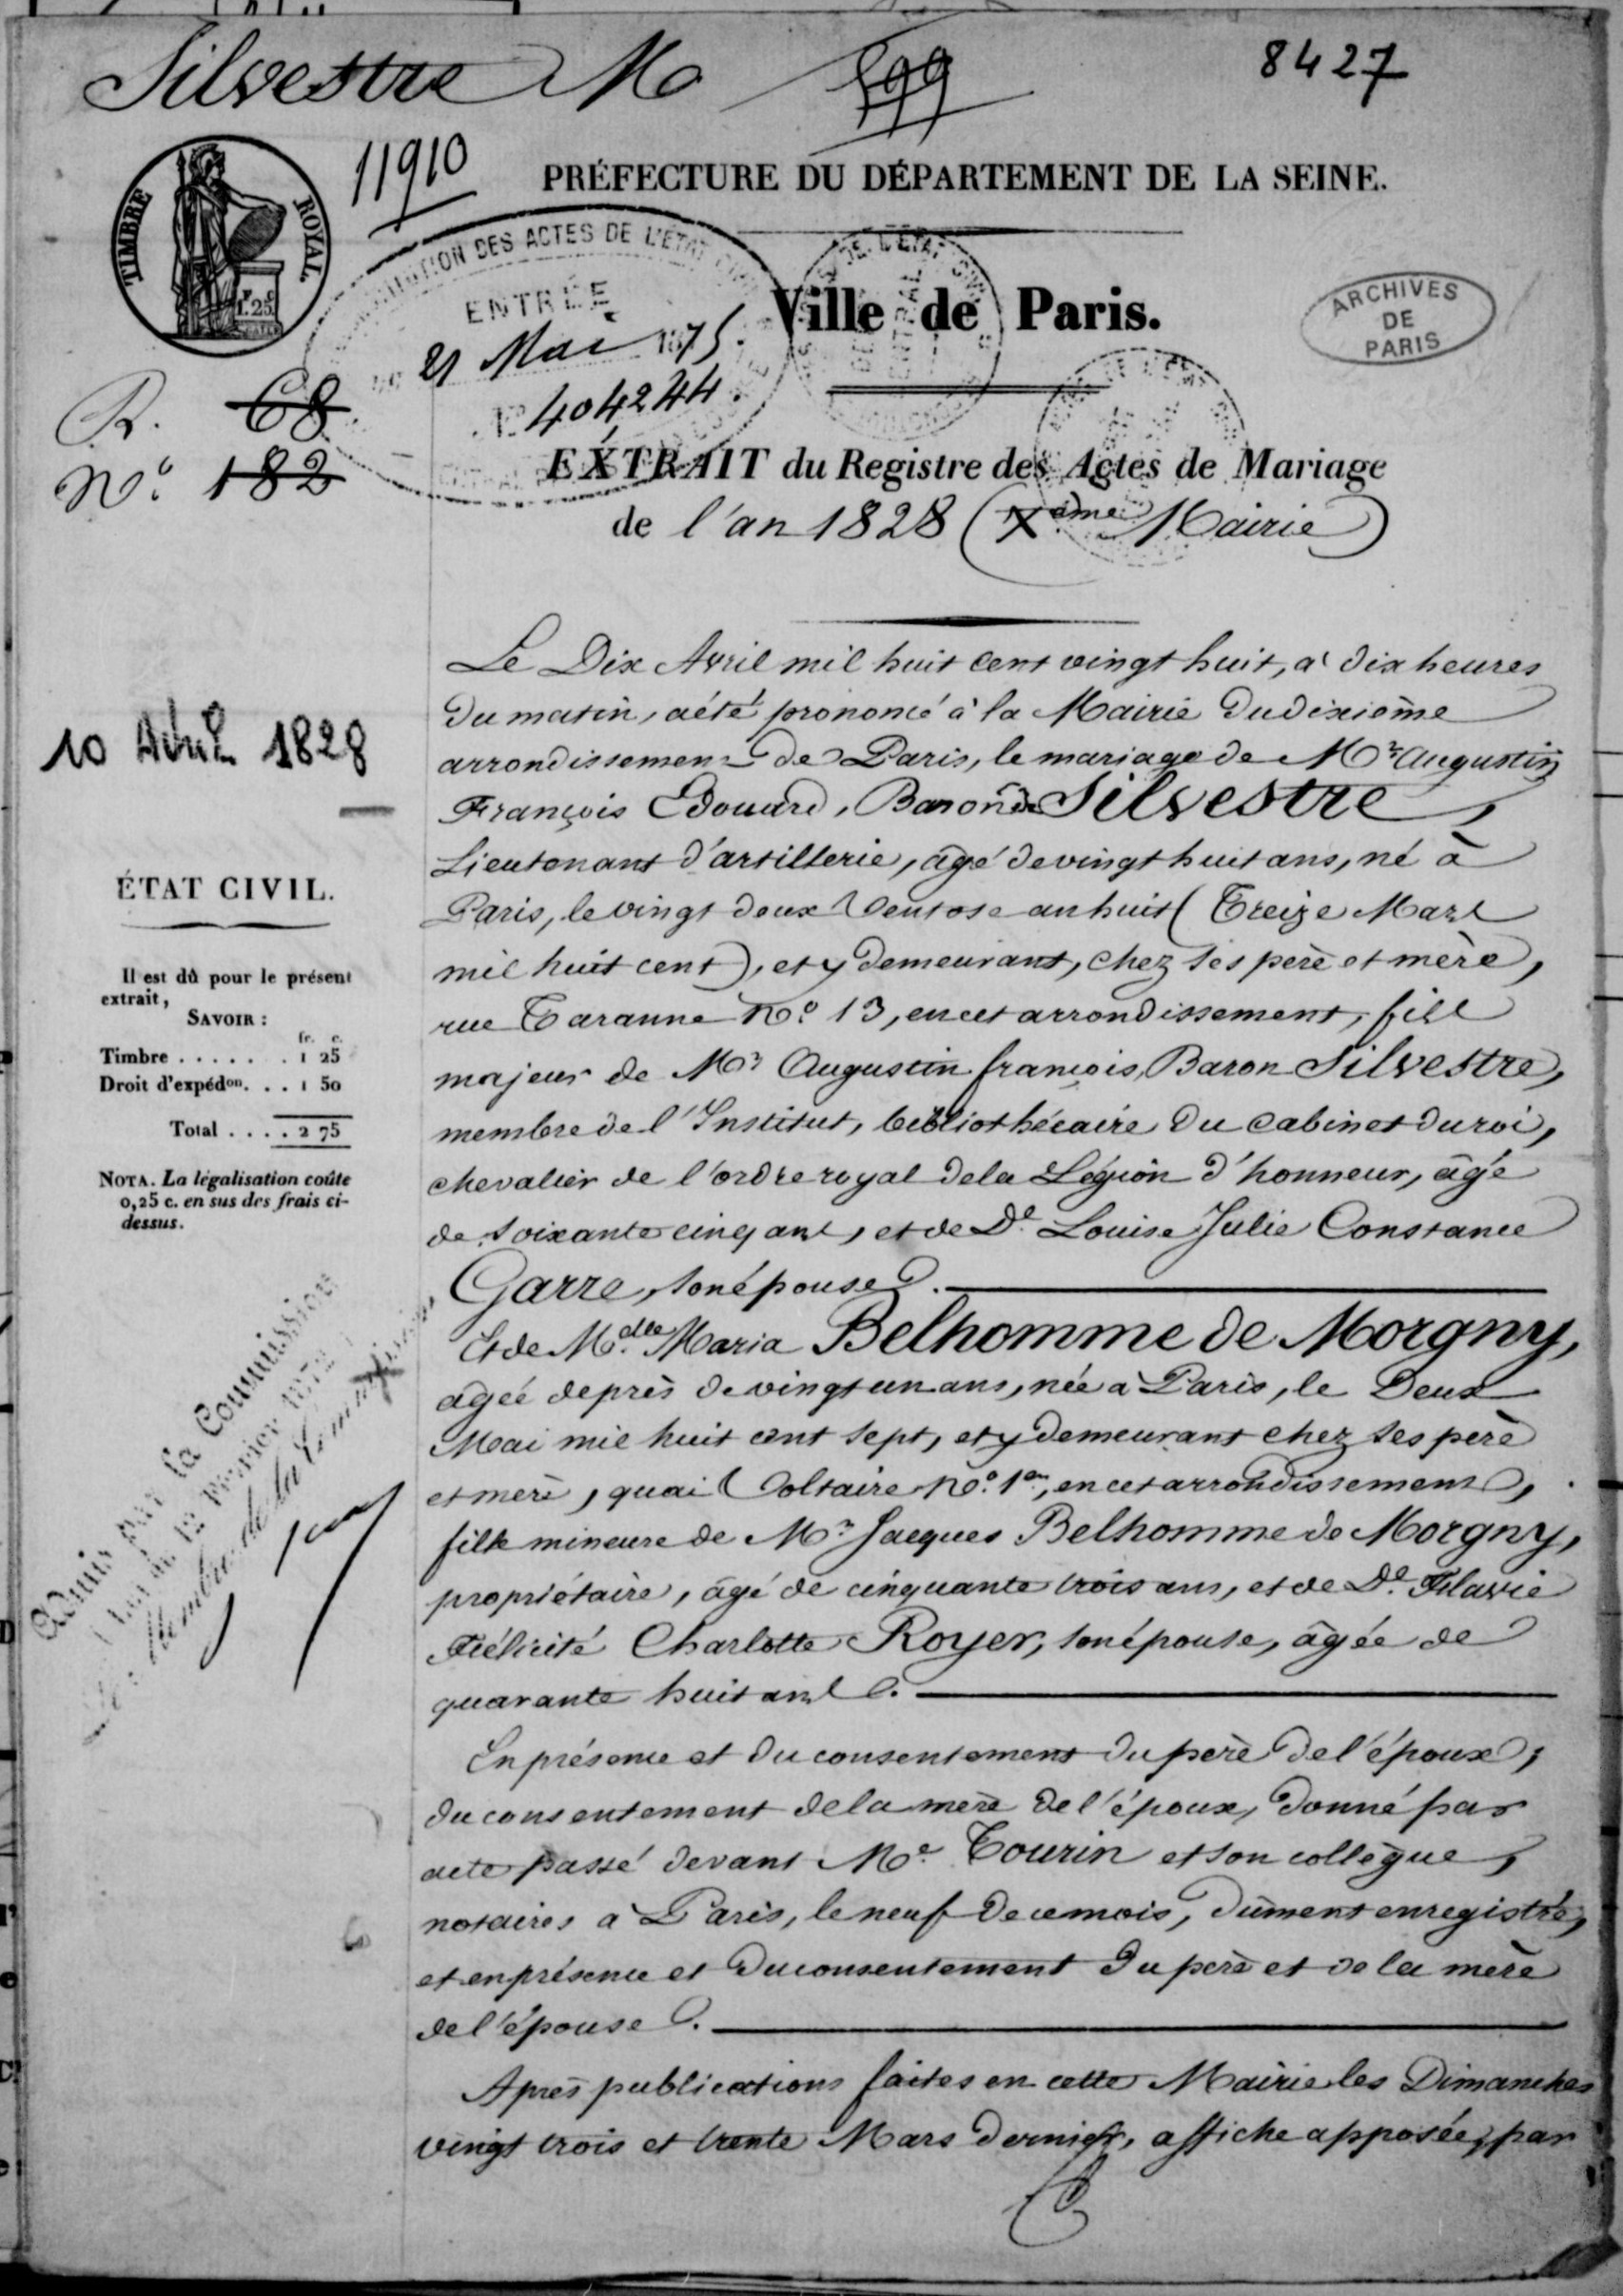 Silvestre M 599 8427
11910
TIMBRE ROYAL
1.25
PRÉFECTURE DU DÉPARTEMENT DE LA SEINE.
DES ACTES DE L'ÉTAT
ENTRÉE
21 Mai 1875.
404244.
Ville de Paris.
ARCHIVES
DE
PARIS
R. 68
N° 182
EXTRAIT du Registre des Actes de Mariage
de l'an 1828 (Xème Mairie)
Le Dix Avril mil huit cent vingt huit, à dix heures
du matin, a été prononcé à la Mairie du dixième
arrondissement de Paris, le mariage de Mr. Augustin
François Edouard, Baron de Silvestre,
Lieutenant d'artillerie, âgé de vingt huit ans, né à
Paris, le vingt deux Ventose an huit (Treize Mars
mil huit cent), et y demeurant, chez ses père et mère,
rue Taranne No. 13, en cet arrondissement, fils
majeur de Mr Augustin françois, Baron Silvestre,
membre de l'Institut, bibliothécaire du Cabinet du roi,
chevalier de l'ordre royal de la Légion d'honneur, âgé
de soixante cinq ans, et de De Louise Julie Constance
Garre, son épouse.
Et de Mdlle. Maria Belhomme de Morgny,
agée de près de vingt un ans, née à Paris, le Deux
Mai mil huit cent sept, et y demeurant chez ses père
et mère, quai Voltaire No. 1er, en cet arrondissement,
fille mineure de Mr Jacques Belhomme de Morgny,
propriétaire, âgé de cinquante trois ans, et de De. Flavie
Félicité Charlotte Royer, son épouse, âgée de
quarante huit ans.
En présence et du consentement du père de l'époux,
du consentement de la mère de l'époux, donné par
acte passé devant Me. Tourin et son collègue,
notaires à Paris, le neuf de ce mois, dûment enregistré,
et en présence et du consentement du père et de la mère
de l'épouse.
Après publications faites en cette Mairie les Dimanches
vingt trois et trente Mars dernier, affiche apposée, par
10 Avril 1828
ÉTAT CIVIL.
Il est dû pour le présent
extrait,
SAVOIR :
fr. c.
Timbre . . . . . . 1 25
Droit d'expédon. . . 1 50
Total . . . . 2 75
NOTA. La légalisation coûte
0,25 c. en sus des frais ci-
dessus.
Admis par la Commission
Loi du 12 Février 1872
Membre de la Commission